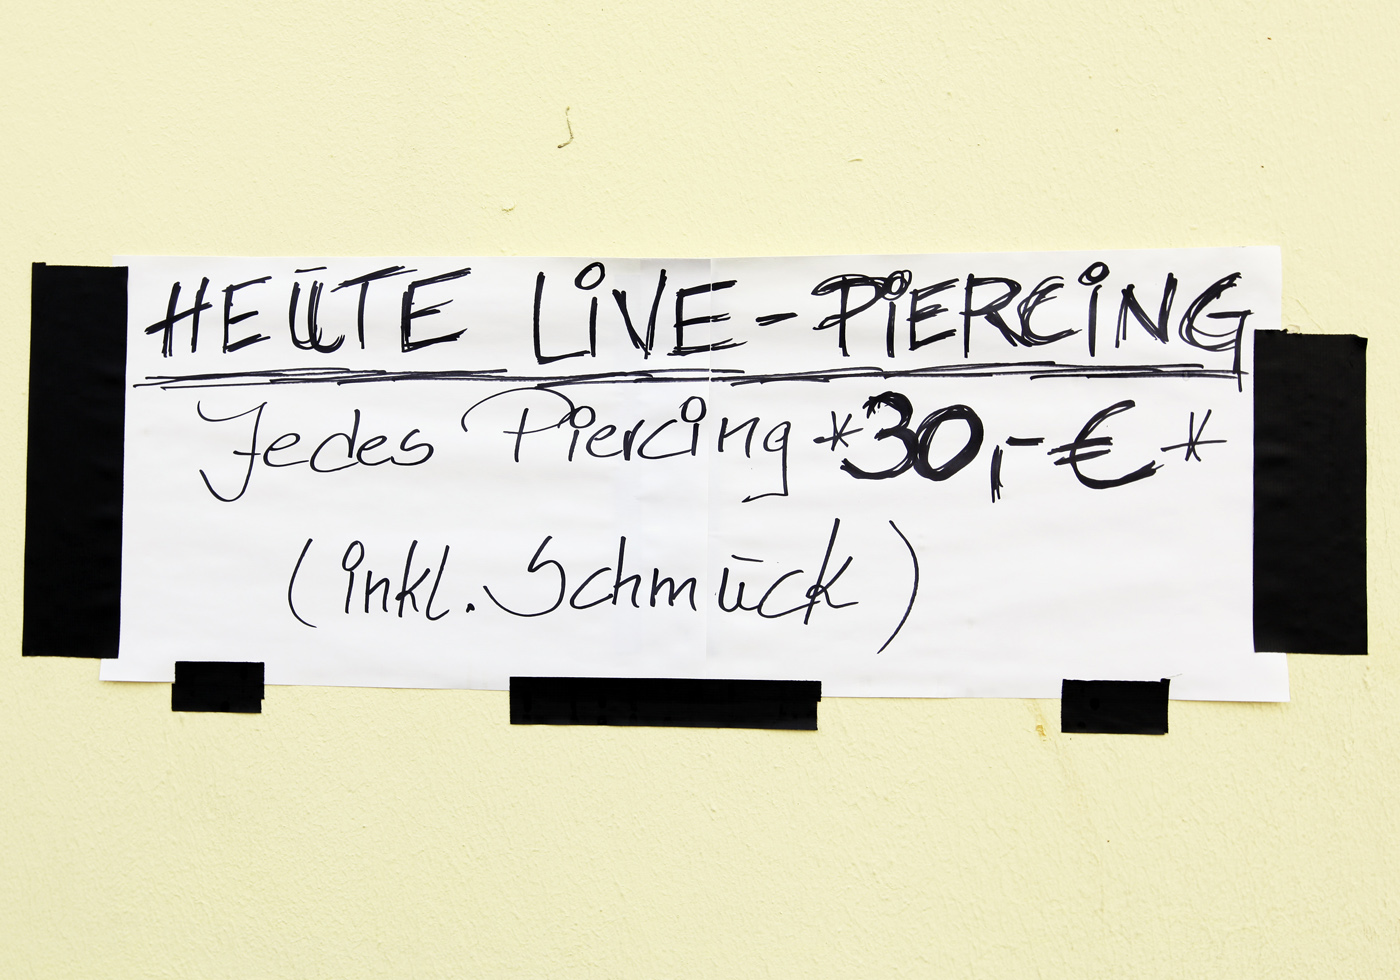 HEUTE LiVE-PiERCiNG
Jedes Piercing *30,-€*
(inkl. Schmuck)